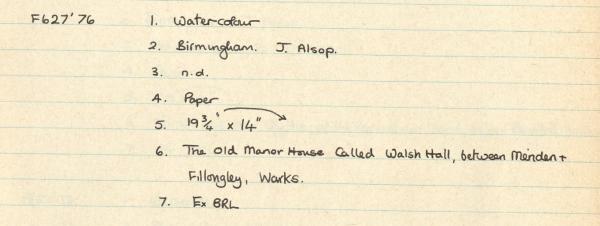 F627'76 1. Watercolour
2. Birmingham. J. Alsop.
3. n.d.
4. Paper
5. 19 3/4" x 14"
6. The Old Manor House Called Walsh Hall, between Meriden +
Fillongley, Warks.
7. Ex BRL